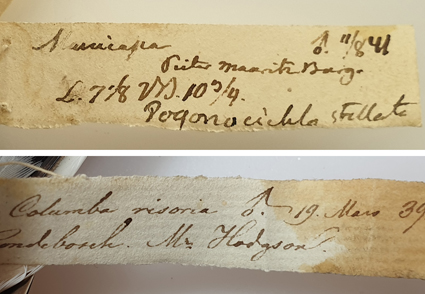 Muscicapa ♂. 11/8 41
Pieter Maaritz Burg.
L. 7 1/8 VB. 10 3/4.
Pogonocichla stellata
Columba risoria ♂. 19. Mars 39
ondebosch. Mr Hodgson.